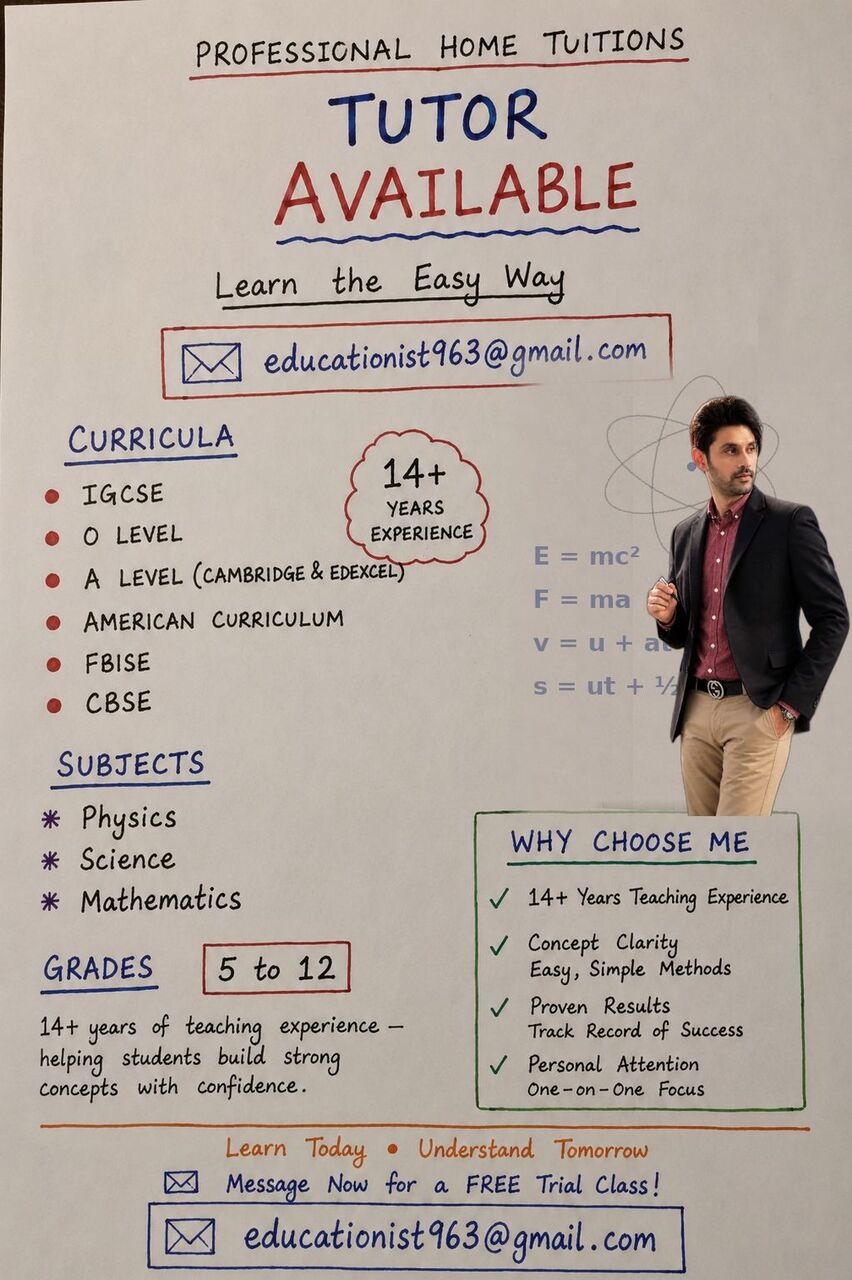 PROFESSIONAL HOME TUITIONS
TUTOR
AVAILABLE
Learn the Easy Way
educationist963@gmail.com
CURRICULA
IGCSE
O LEVEL
A LEVEL (CAMBRIDGE & EDEXCEL)
AMERICAN CURRICULUM
FBISE
CBSE
14+
YEARS
EXPERIENCE
E = mc²
F = ma
v = u + at
s = ut + ½
SUBJECTS
Physics
Science
Mathematics
GRADES
5 to 12
14+ years of teaching experience –
helping students build strong
concepts with confidence.
WHY CHOOSE ME
14+ Years Teaching Experience
Concept Clarity
Easy, Simple Methods
Proven Results
Track Record of Success
Personal Attention
One-on-One Focus
Learn Today • Understand Tomorrow
Message Now for a FREE Trial Class!
educationist963@gmail.com